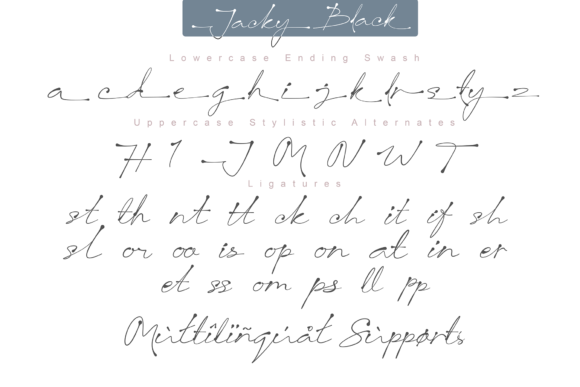 Jacky Black
Lowercase Ending Swash
a c d e g h i j k l r s t y z
Uppercase Stylistic Alternates
H I J M N W T
Ligatures
st th nt tt ck ch it if sh
sl or oo is op on at in er
et ss om ps ll pp
Mùltîlïñgúåt Sùppørts